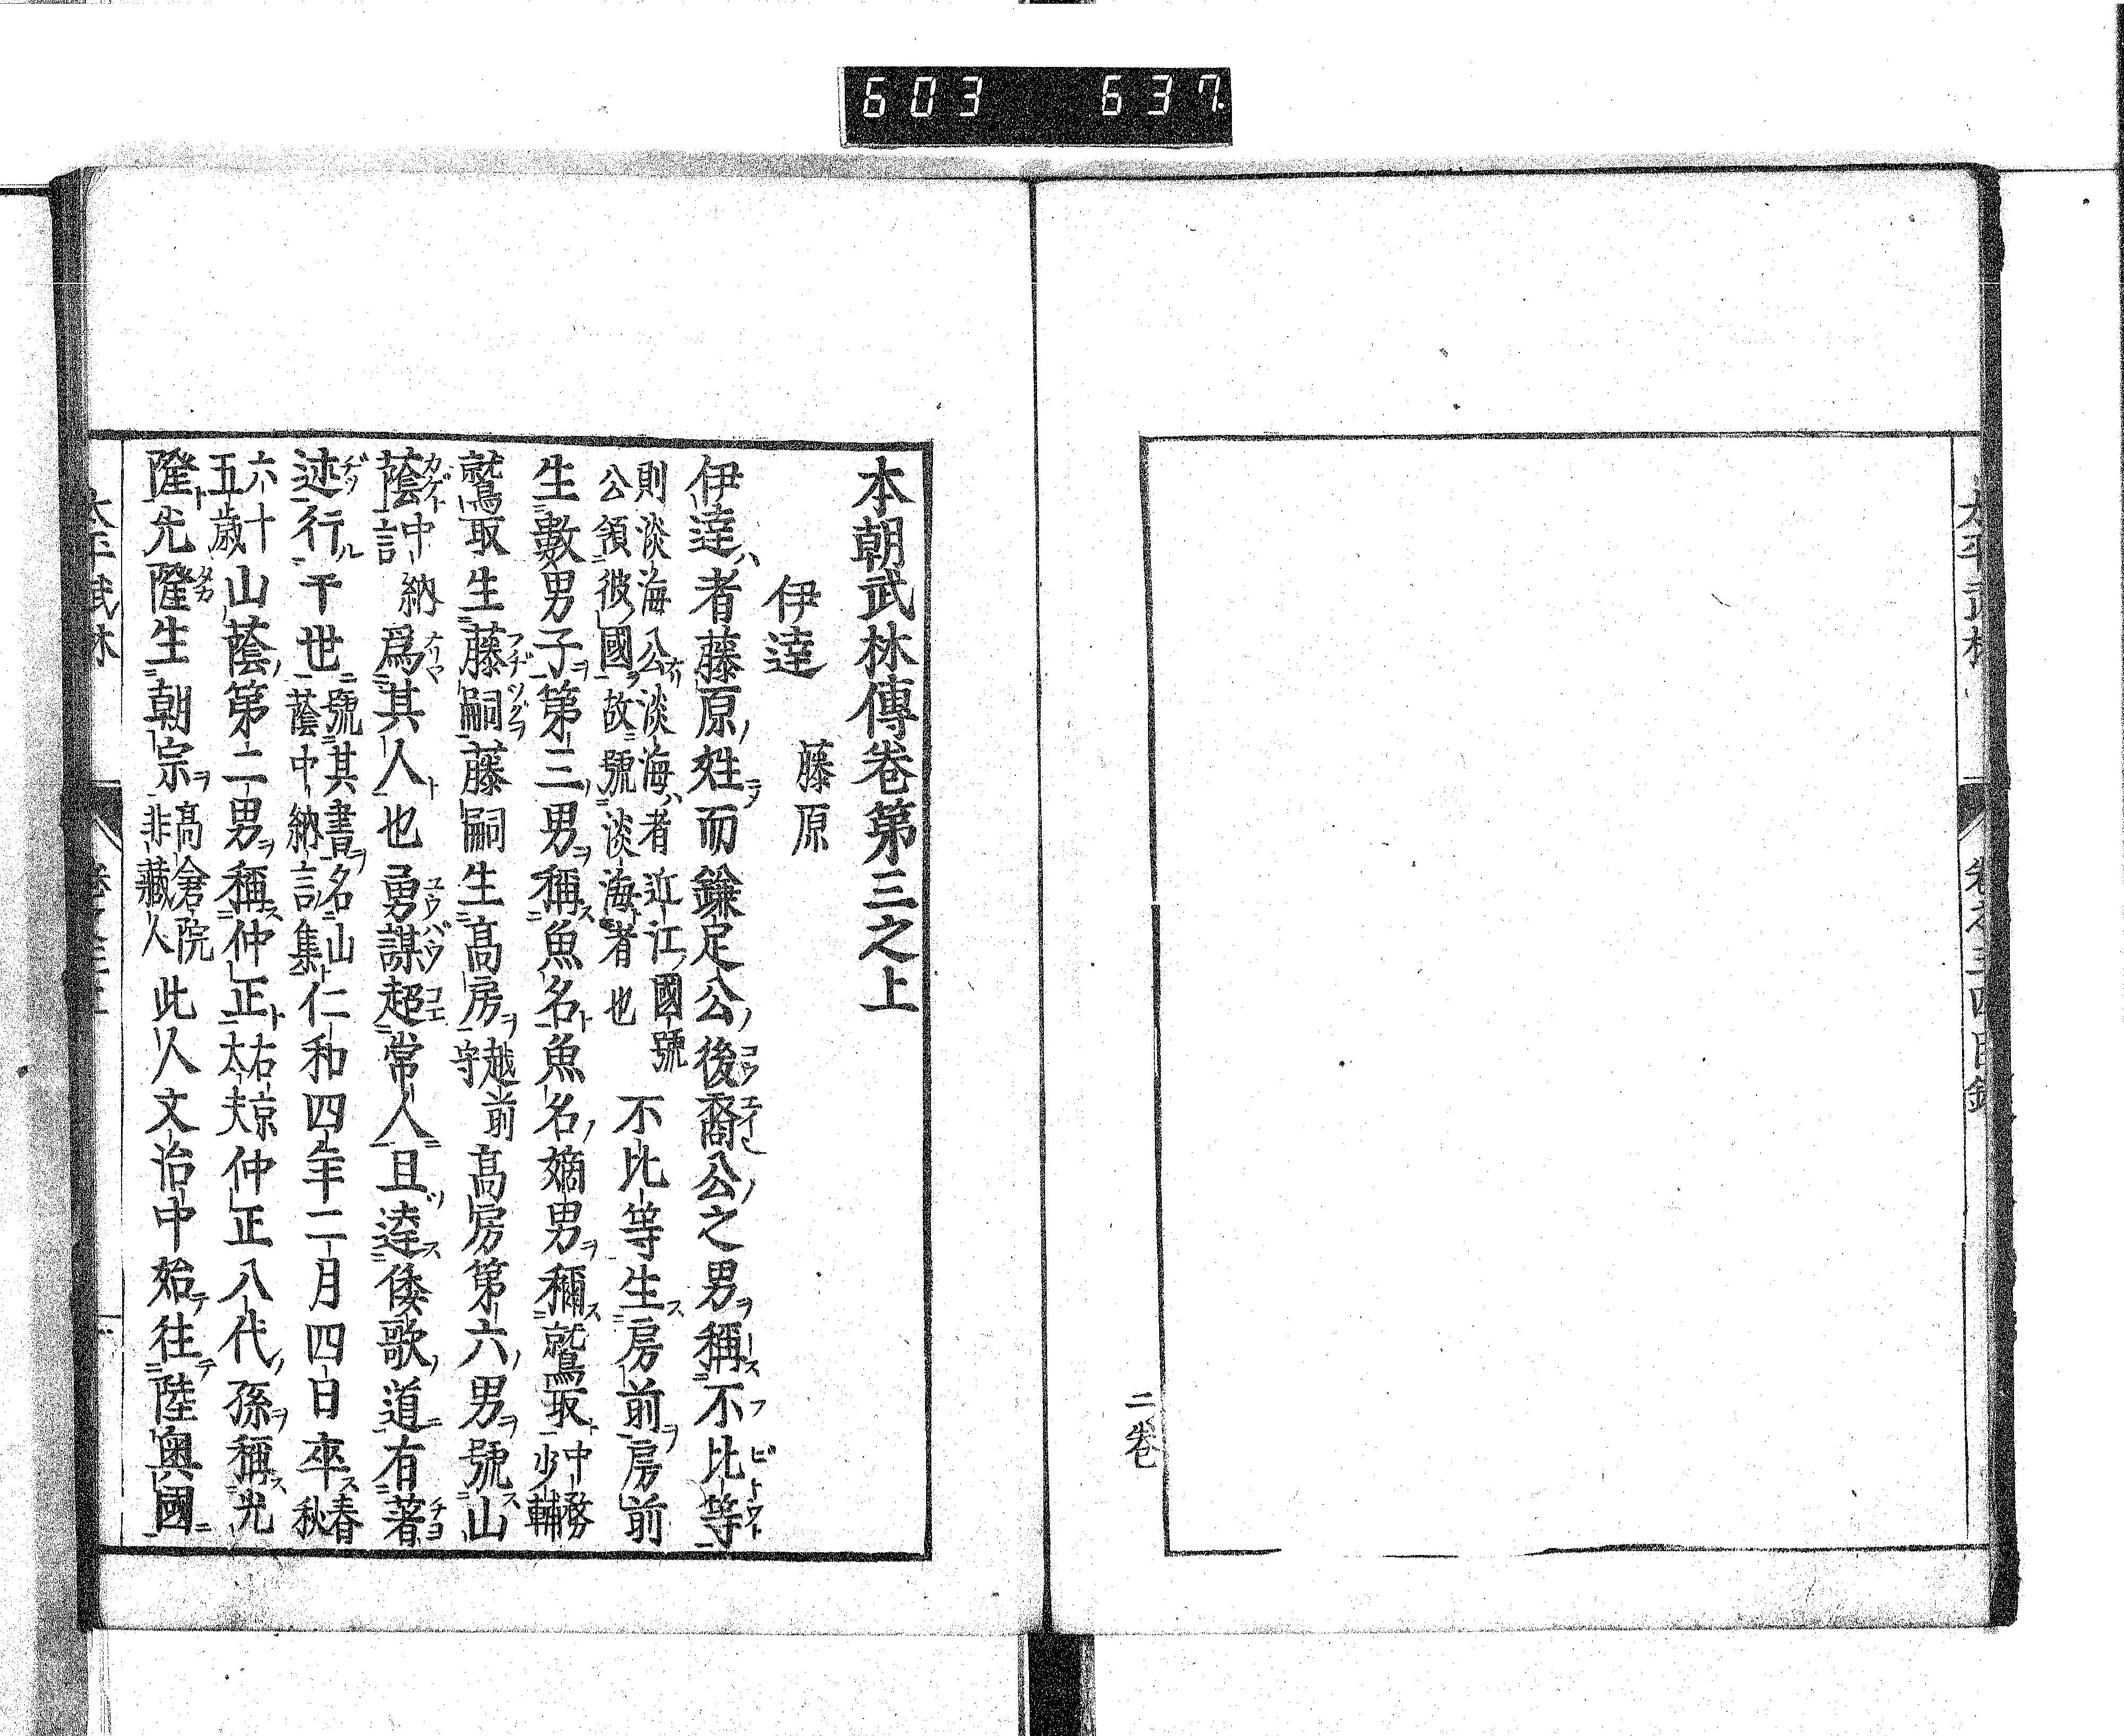 603 637
二巻
本朝武林傳卷第三之上
伊達 藤原
伊達者藤原姓而鎌足公後裔公之男稱不比等
則淡海公淡海者近江國號
公領彼國故號淡海者也 不比等生房前房前
生數男子第三男稱魚名魚名嫡男稱鷲取中務少輔
鷲取生藤嗣藤嗣生高房越前守高房第六男號山
蔭中納言爲其人也勇謀超常人且達倭歌道有著
述行于世號其書名山蔭中納言集仁和四年二月四日卒春秋
六十五歳山蔭第二男稱仲正右京太夫仲正八代孫稱光
隆光隆生朝宗高倉院非藏人此人文治中始往陸奥國